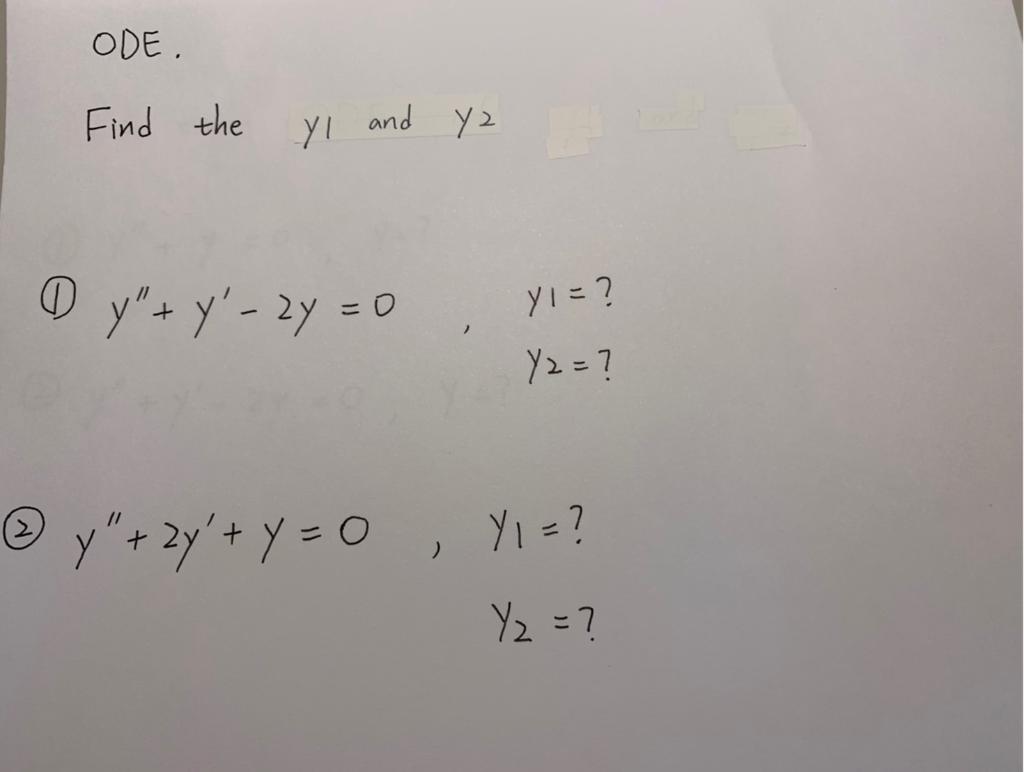 ODE.
Find the y1 and y2
① y'' + y' - 2y = 0 , y1 = ?
y2 = ?
② y'' + 2y' + y = 0 , y1 = ?
y2 = ?